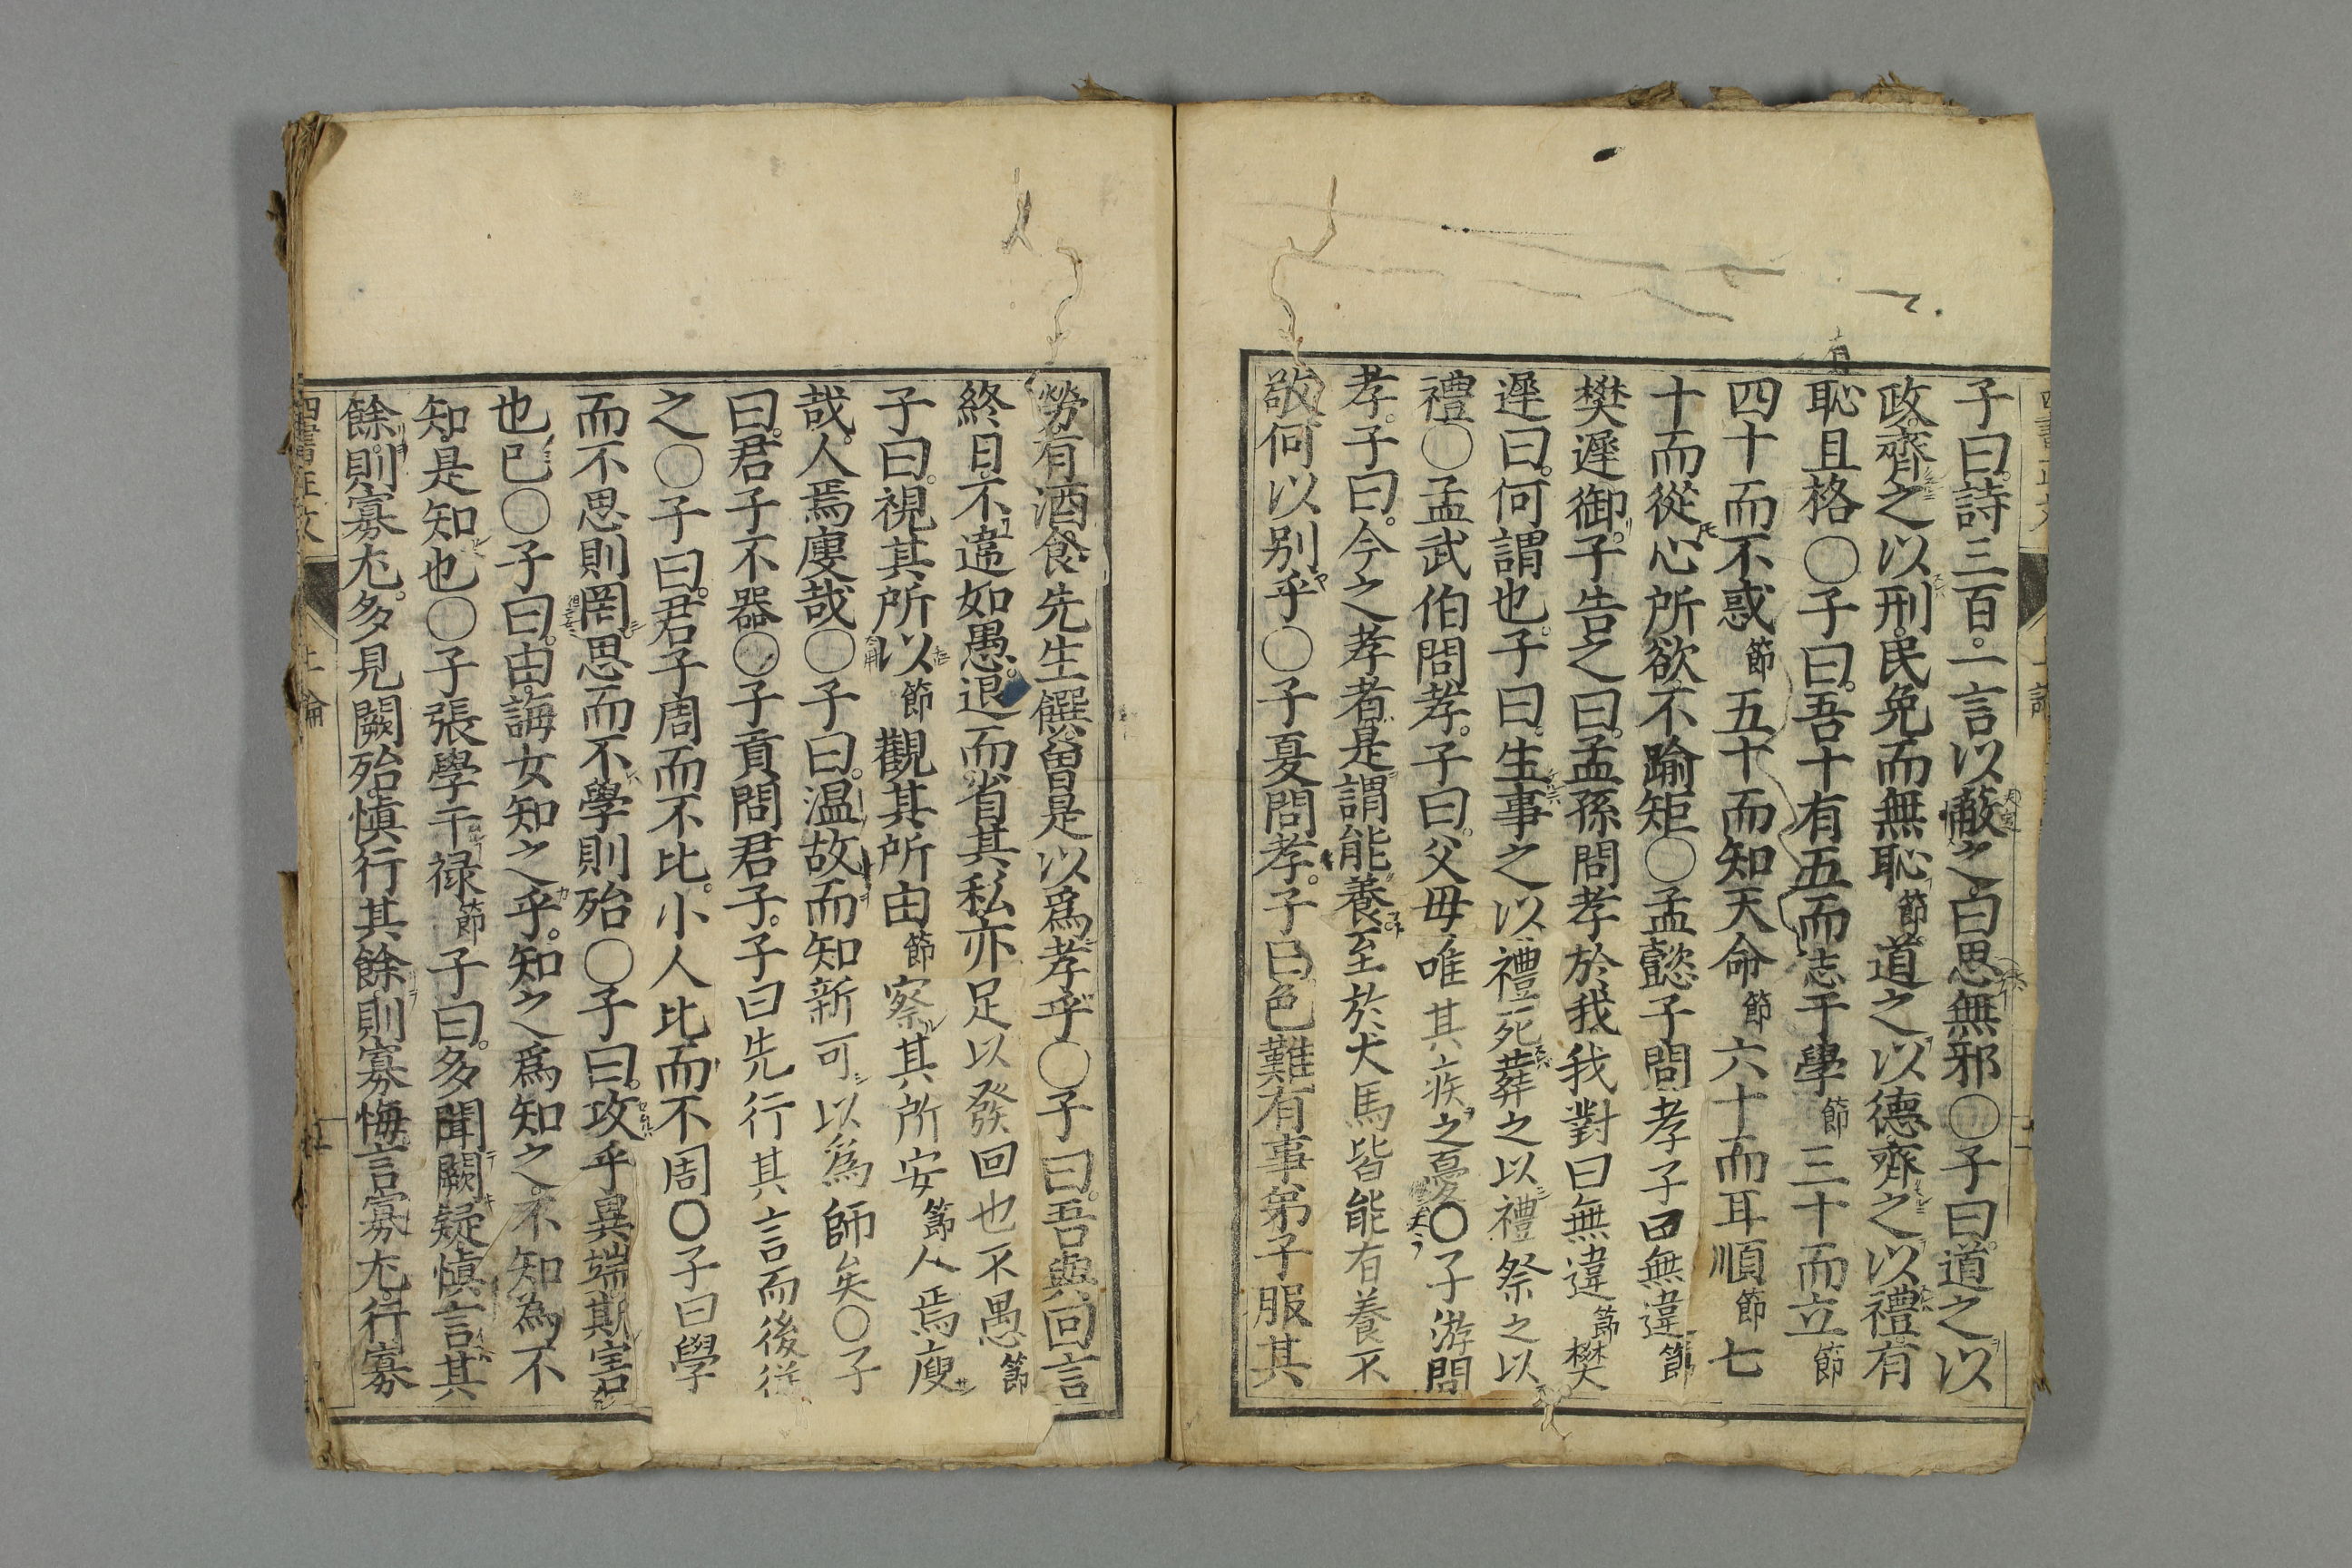 子曰詩三百一言以蔽之曰思無邪〇子曰道之以
政齊之以刑民免而無恥節道之以德齊之以禮有
恥且格〇子曰吾十有五而志于學節三十而立節
四十而不惑節五十而知天命節六十而耳順節七
十而從心所欲不踰矩〇孟懿子問孝子曰無違節
樊遲御子告之曰孟孫問孝於我我對曰無違節樊
遲曰何謂也子曰生事之以禮死葬之以禮祭之以
禮〇孟武伯問孝子曰父母唯其疾之憂〇子游問
孝子曰今之孝者是謂能養至於犬馬皆能有養不
敬何以别乎〇子夏問孝子曰色難有事弟子服其
勞有酒食先生饌曾是以爲孝乎〇子曰吾與回言
終日不違如愚退而省其私亦足以發回也不愚節
子曰視其所以節觀其所由節察其所安節人焉廋
哉人焉廋哉〇子曰温故而知新可以爲師矣〇子
曰君子不器〇子貢問君子子曰先行其言而後従
之〇子曰君子周而不比小人比而不周〇子曰學
而不思則罔思而不學則殆〇子曰攻乎異端斯害
也已〇子曰由誨女知之乎知之爲知之不知為不
知是知也〇子張學干禄節子曰多聞闕疑慎言其
餘則寡尤多見闕殆慎行其餘則寡悔言寡尤行寡